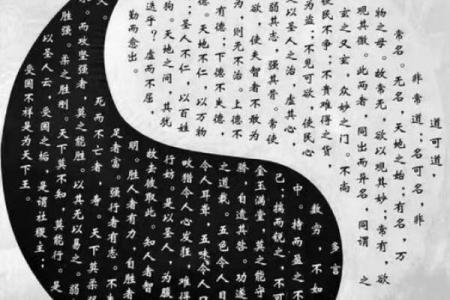 道可道，
非常道；名可名，非
常名。无名，天地之始；有名，万
物之母。故常无，欲以观其妙；常有，欲
观其徼。此两者，同出而异名，同谓 之
玄之又玄，众妙之门。不尚
使民不争；不贵难得之货，
为盗；不见可欲，使民心
以圣人之治，虚其心
弱其志，强其骨。常使
欲。使夫智者不敢为
为，则无不治。上德不
有德；下德不失德，
德。天地不仁，以万物
狗；圣人不仁，以百姓
狗。天地之间，其犹
乎？虚而不屈，
动而愈出。
多言
数穷，不如
中。持而盈之不
己；揣而锐之，不可
金玉满堂，莫之能守
骄，自遗其咎。功遂
之道哉。五色令人目
令人耳聋，五味令人口
畋猎令人心发狂，难得
行妨。是以圣人，为
故去彼取此。知人者智
明。胜人者有力，自胜
足者富。强行者有志。不
死而不亡者，寿。天下莫柔
而攻坚强者，莫之能胜。以其无以易之。弱
胜强。柔之胜刚。天下莫不知，莫能行。是
以圣人云，受国之垢，是谓社稷主
受国不祥是为天下王。